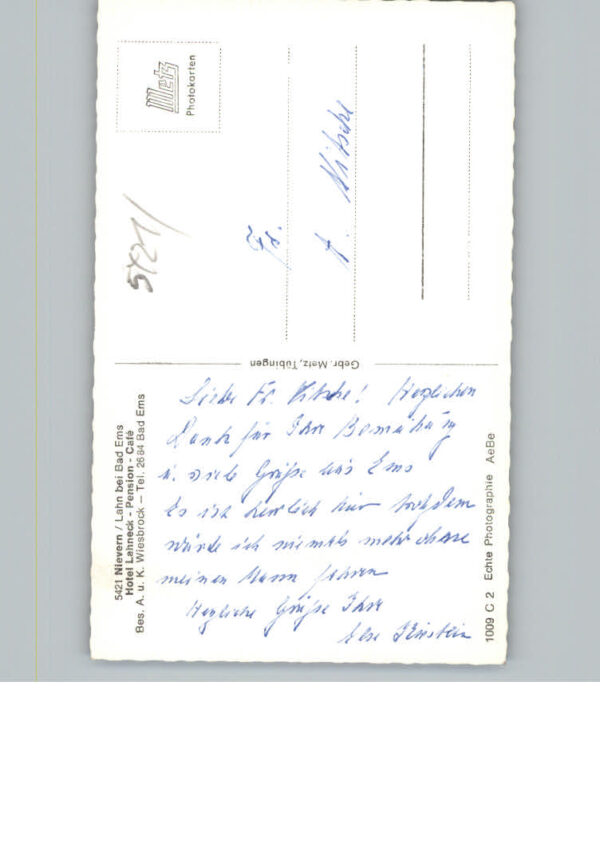 Metz
Photokarten
5421/
Fr.
A. Nitsche
Gebr. Metz, Tübingen
Liebe Fr. Nitsche! Herzlichen
Dank für Ihre Bemühung
u. viele Grüße aus Ems
Es ist herrlich hier trotzdem
würde ich niemals mehr ohne
meinen Mann fahren
Herzliche Grüße Ihre
Else
5421 Nievern / Lahn bei Bad Ems
Hotel Lahneck - Pension - Café
Bes. A. u. K. Wiesbrock — Tel. 2684 Bad Ems
1009 C 2 Echte Photographie AeBe